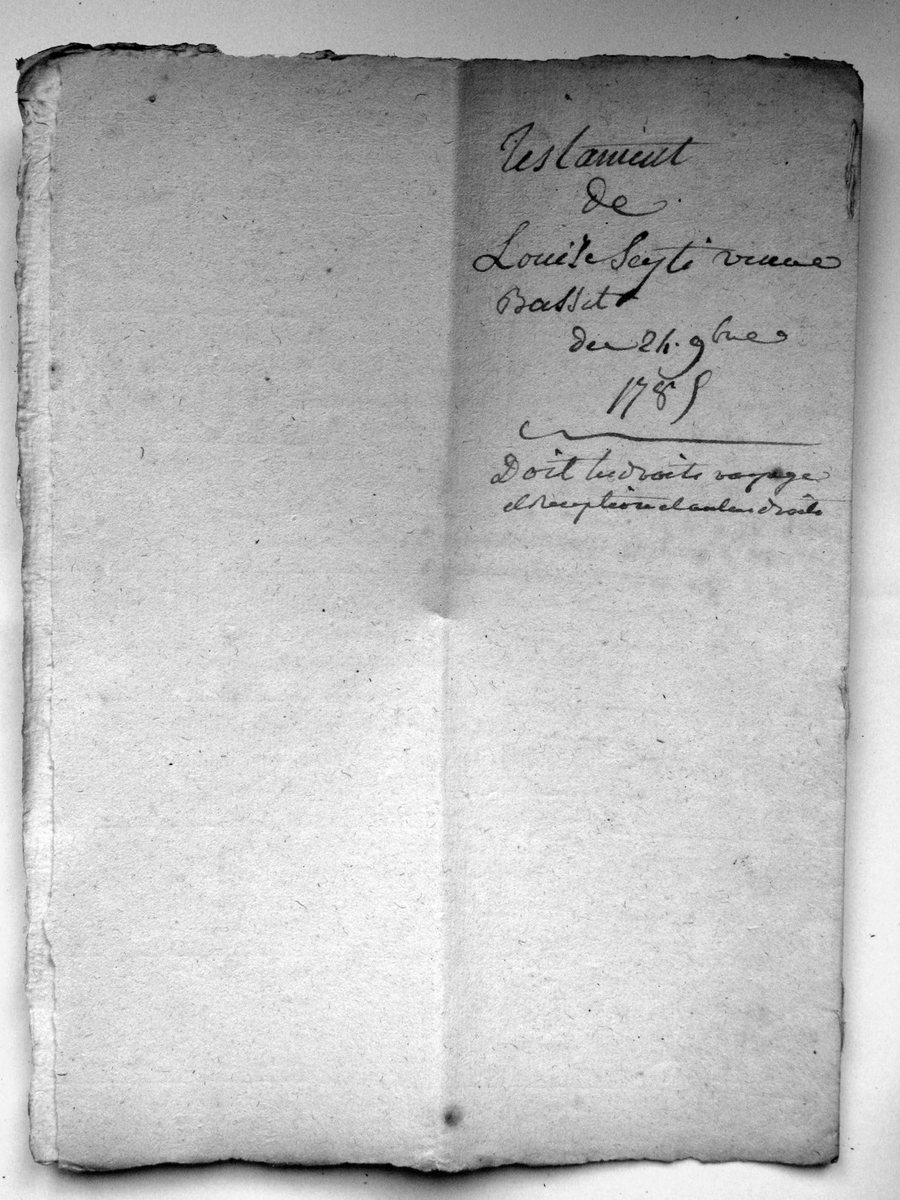 Testament
de
Louise Seyti veuve
Basset
du 24. 9bre
1785
Doit les droits voyage
et reception et autres droits